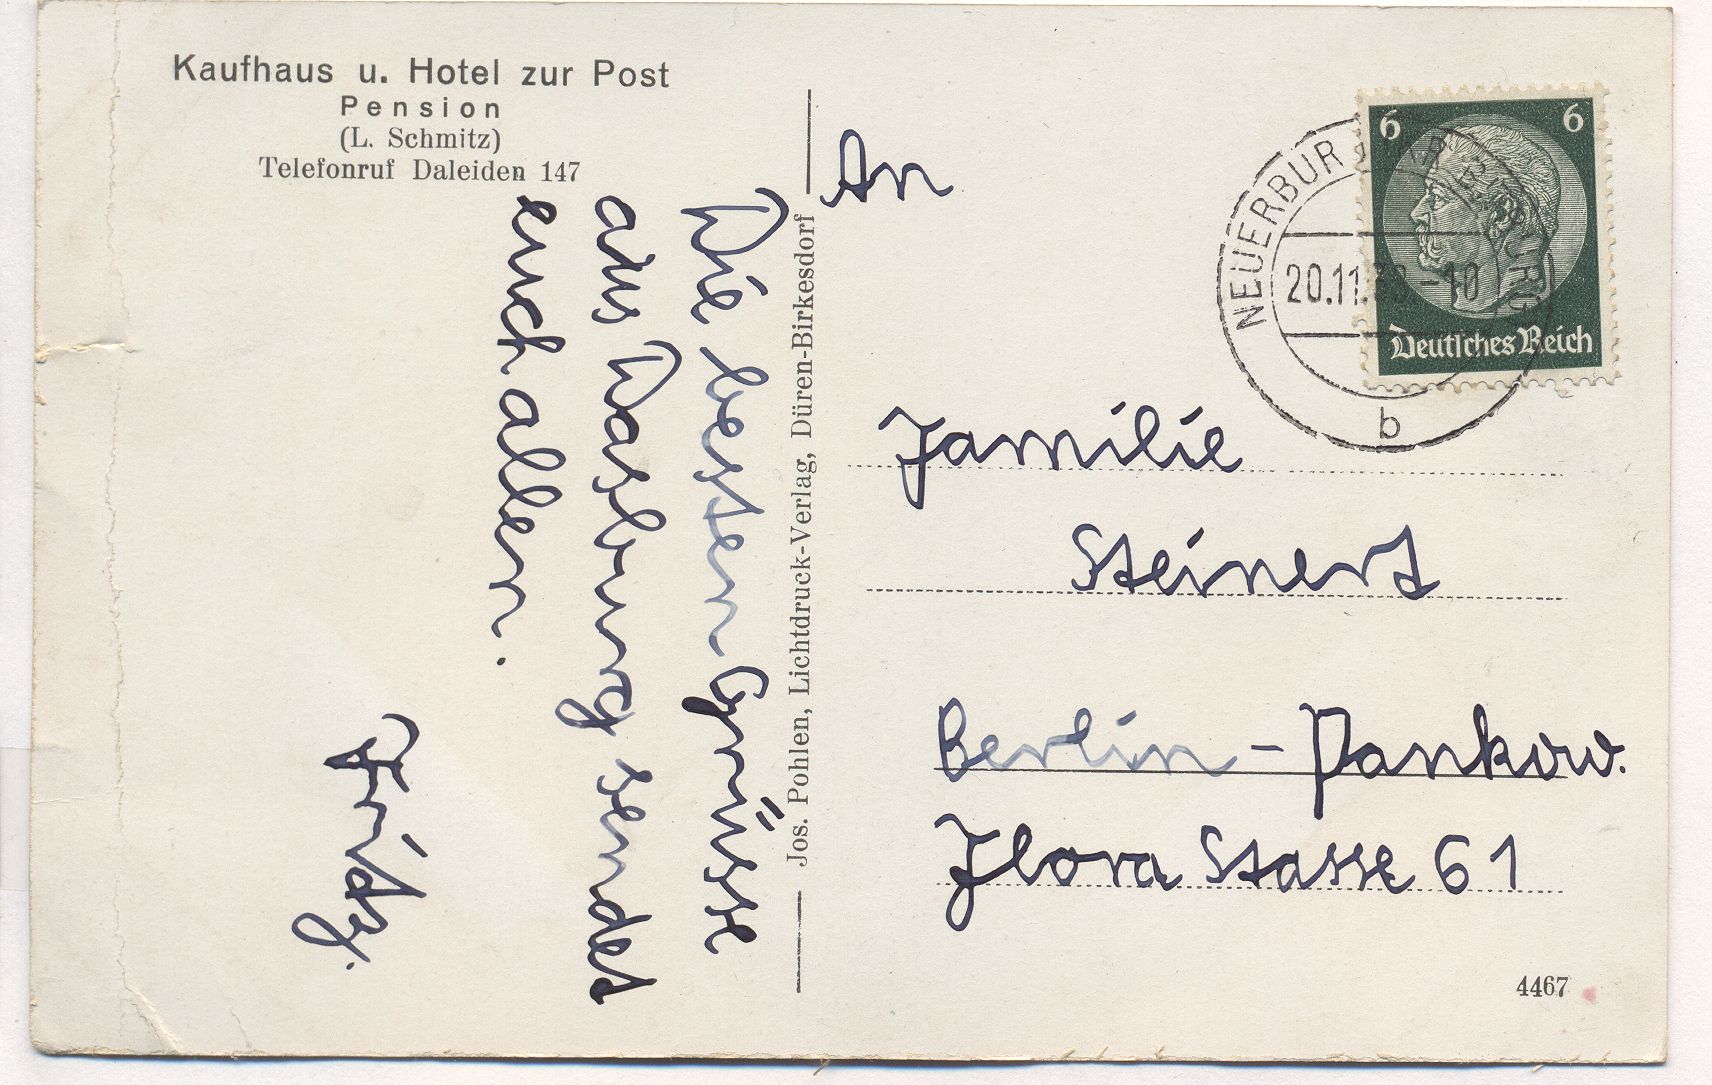 Kaufhaus u. Hotel zur Post
Pension
(L. Schmitz)
Telefonruf Daleiden 147
Die besten Grüsse
aus Dasburg sendet
euch allen.
Fritz.
Jos. Pohlen, Lichtdruck-Verlag, Düren-Birkesdorf
An
Familie
Steinert
Berlin - Pankow.
Flora Stasse 61
6 6
Deutsches Reich
NEUERBURG
20.11. -10
b
4467